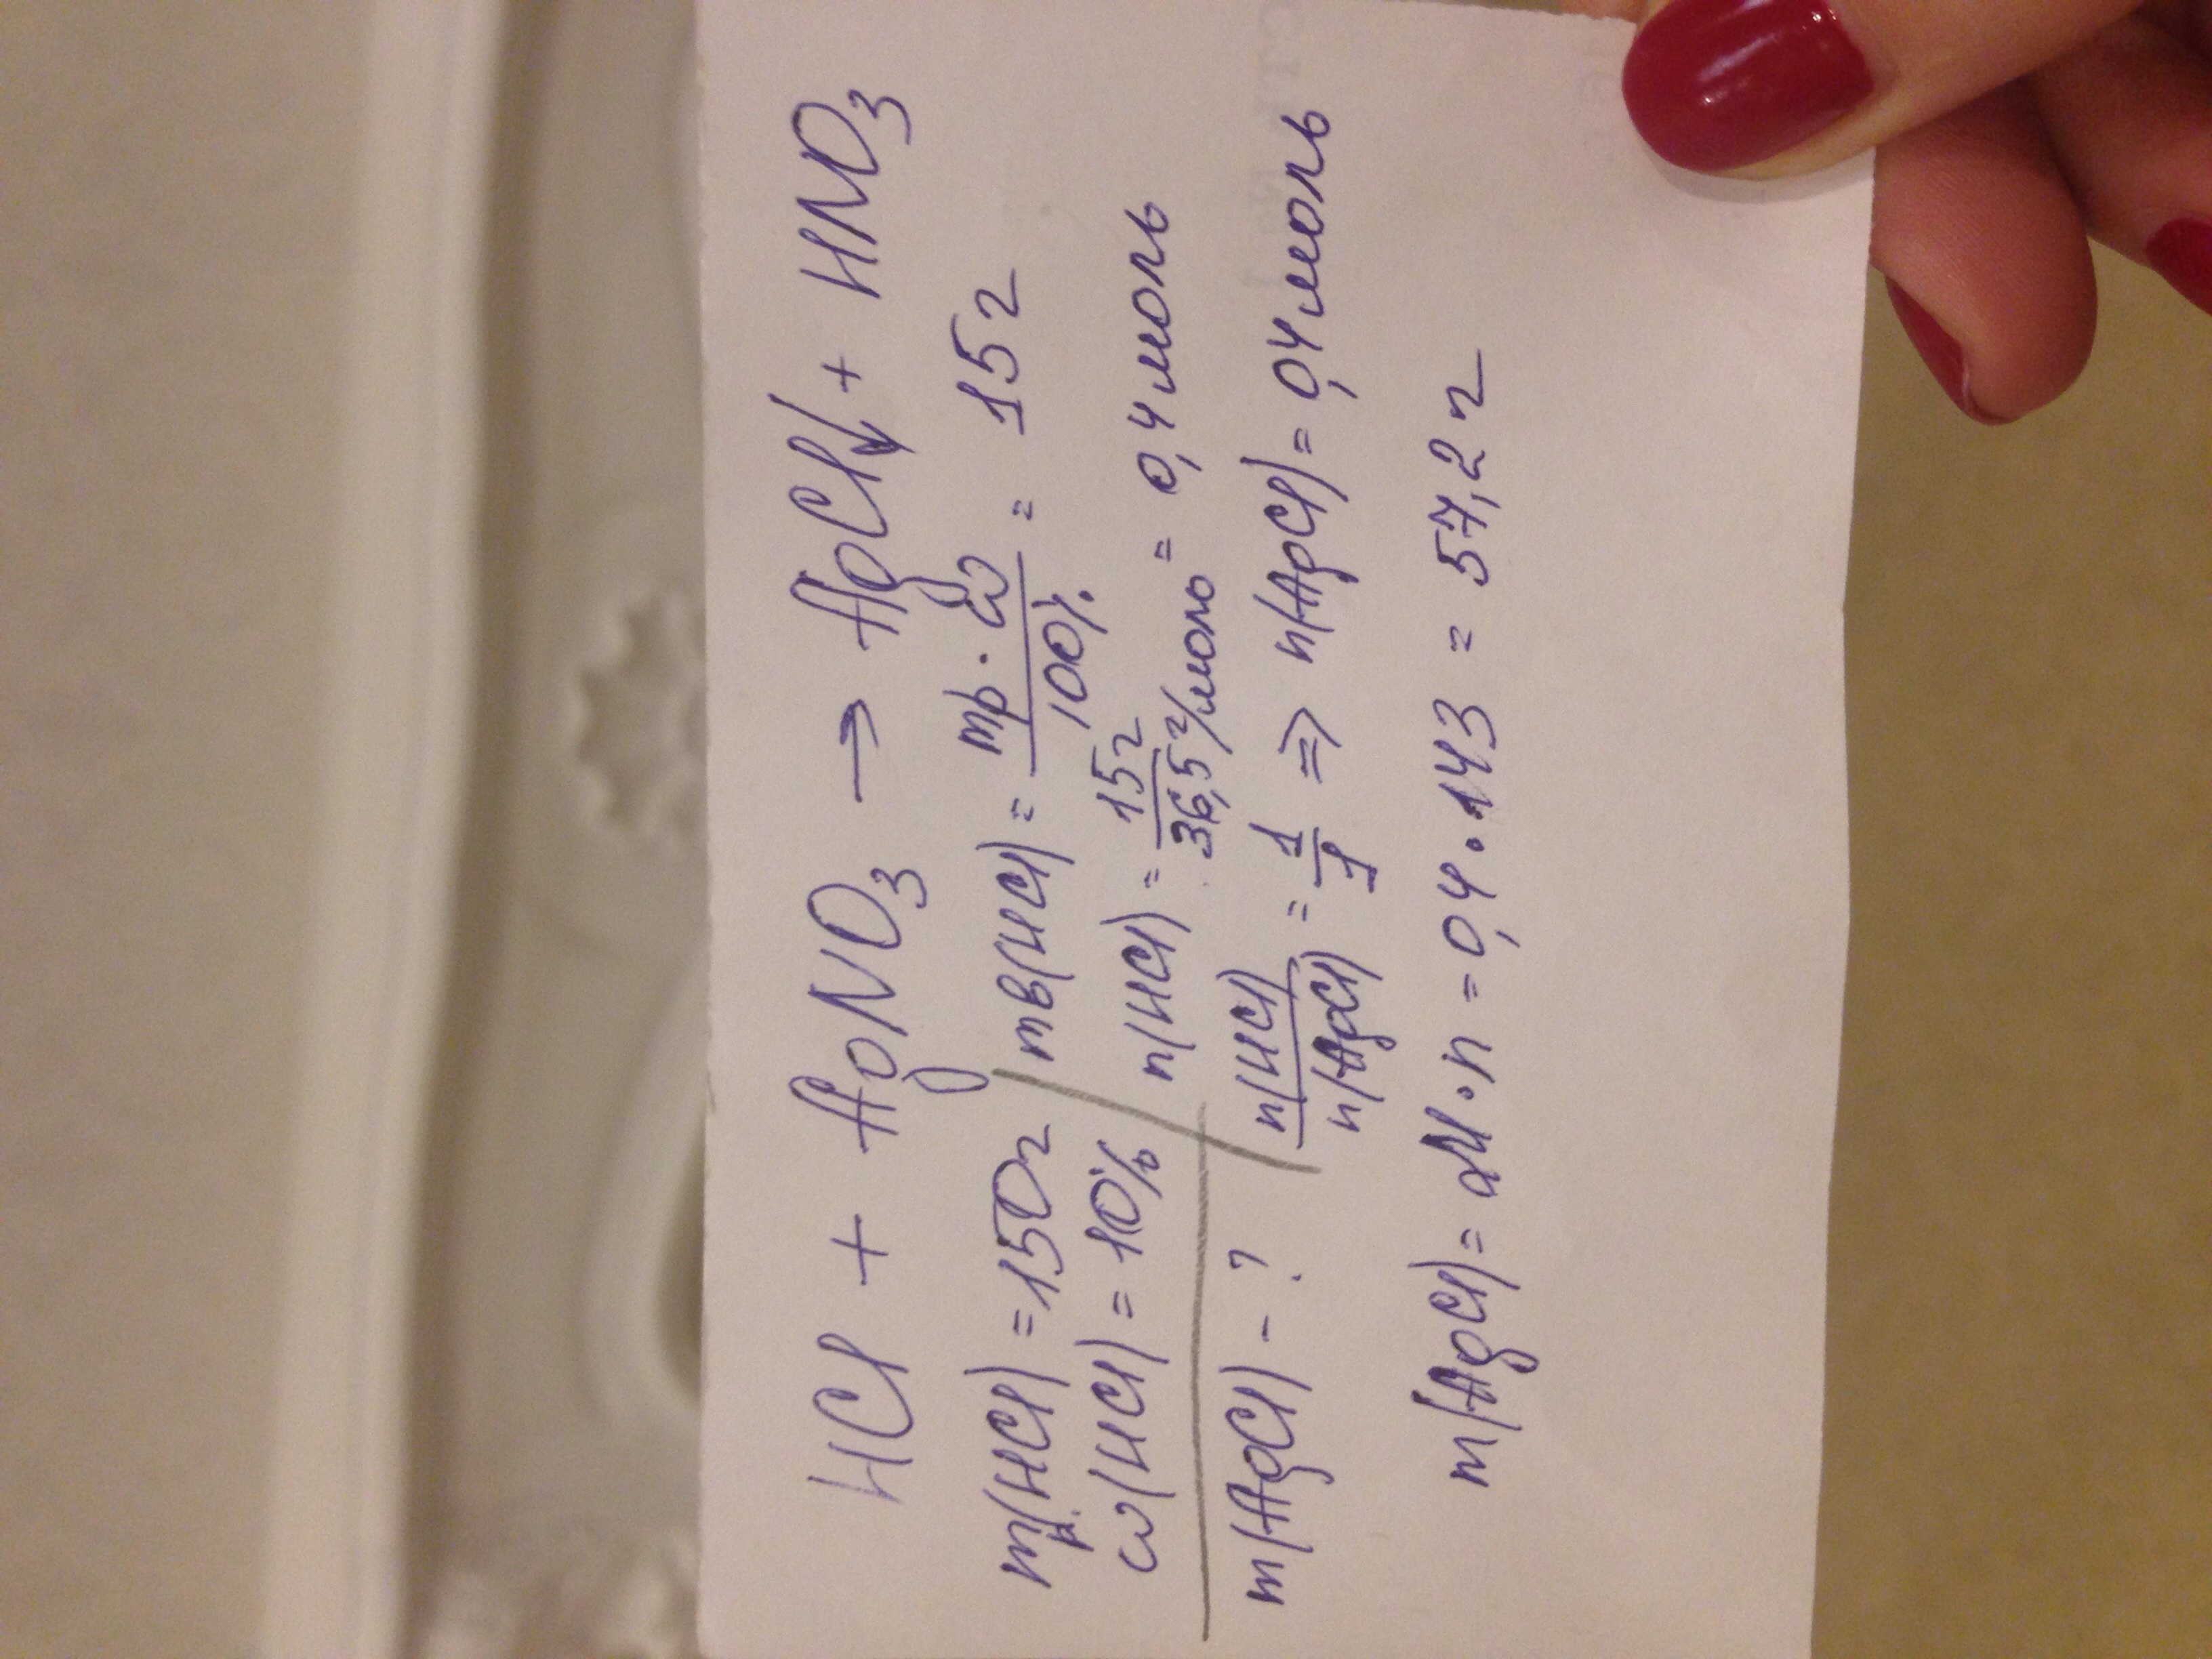 HCl + AgNO3 → AgCl↓ + HNO3
mр.(HCl) = 150г
ω(HCl) = 10%
m(AgCl) - ?
mв(HCl) = mр · ω / 100% = 15г
n(HCl) = 15г / 36,5 г/моль = 0,4 моль
n(HCl) / n(AgCl) = 1/1 => n(AgCl) = 0,4 моль
m(AgCl) = M · n = 0,4 · 143 = 57,2 г